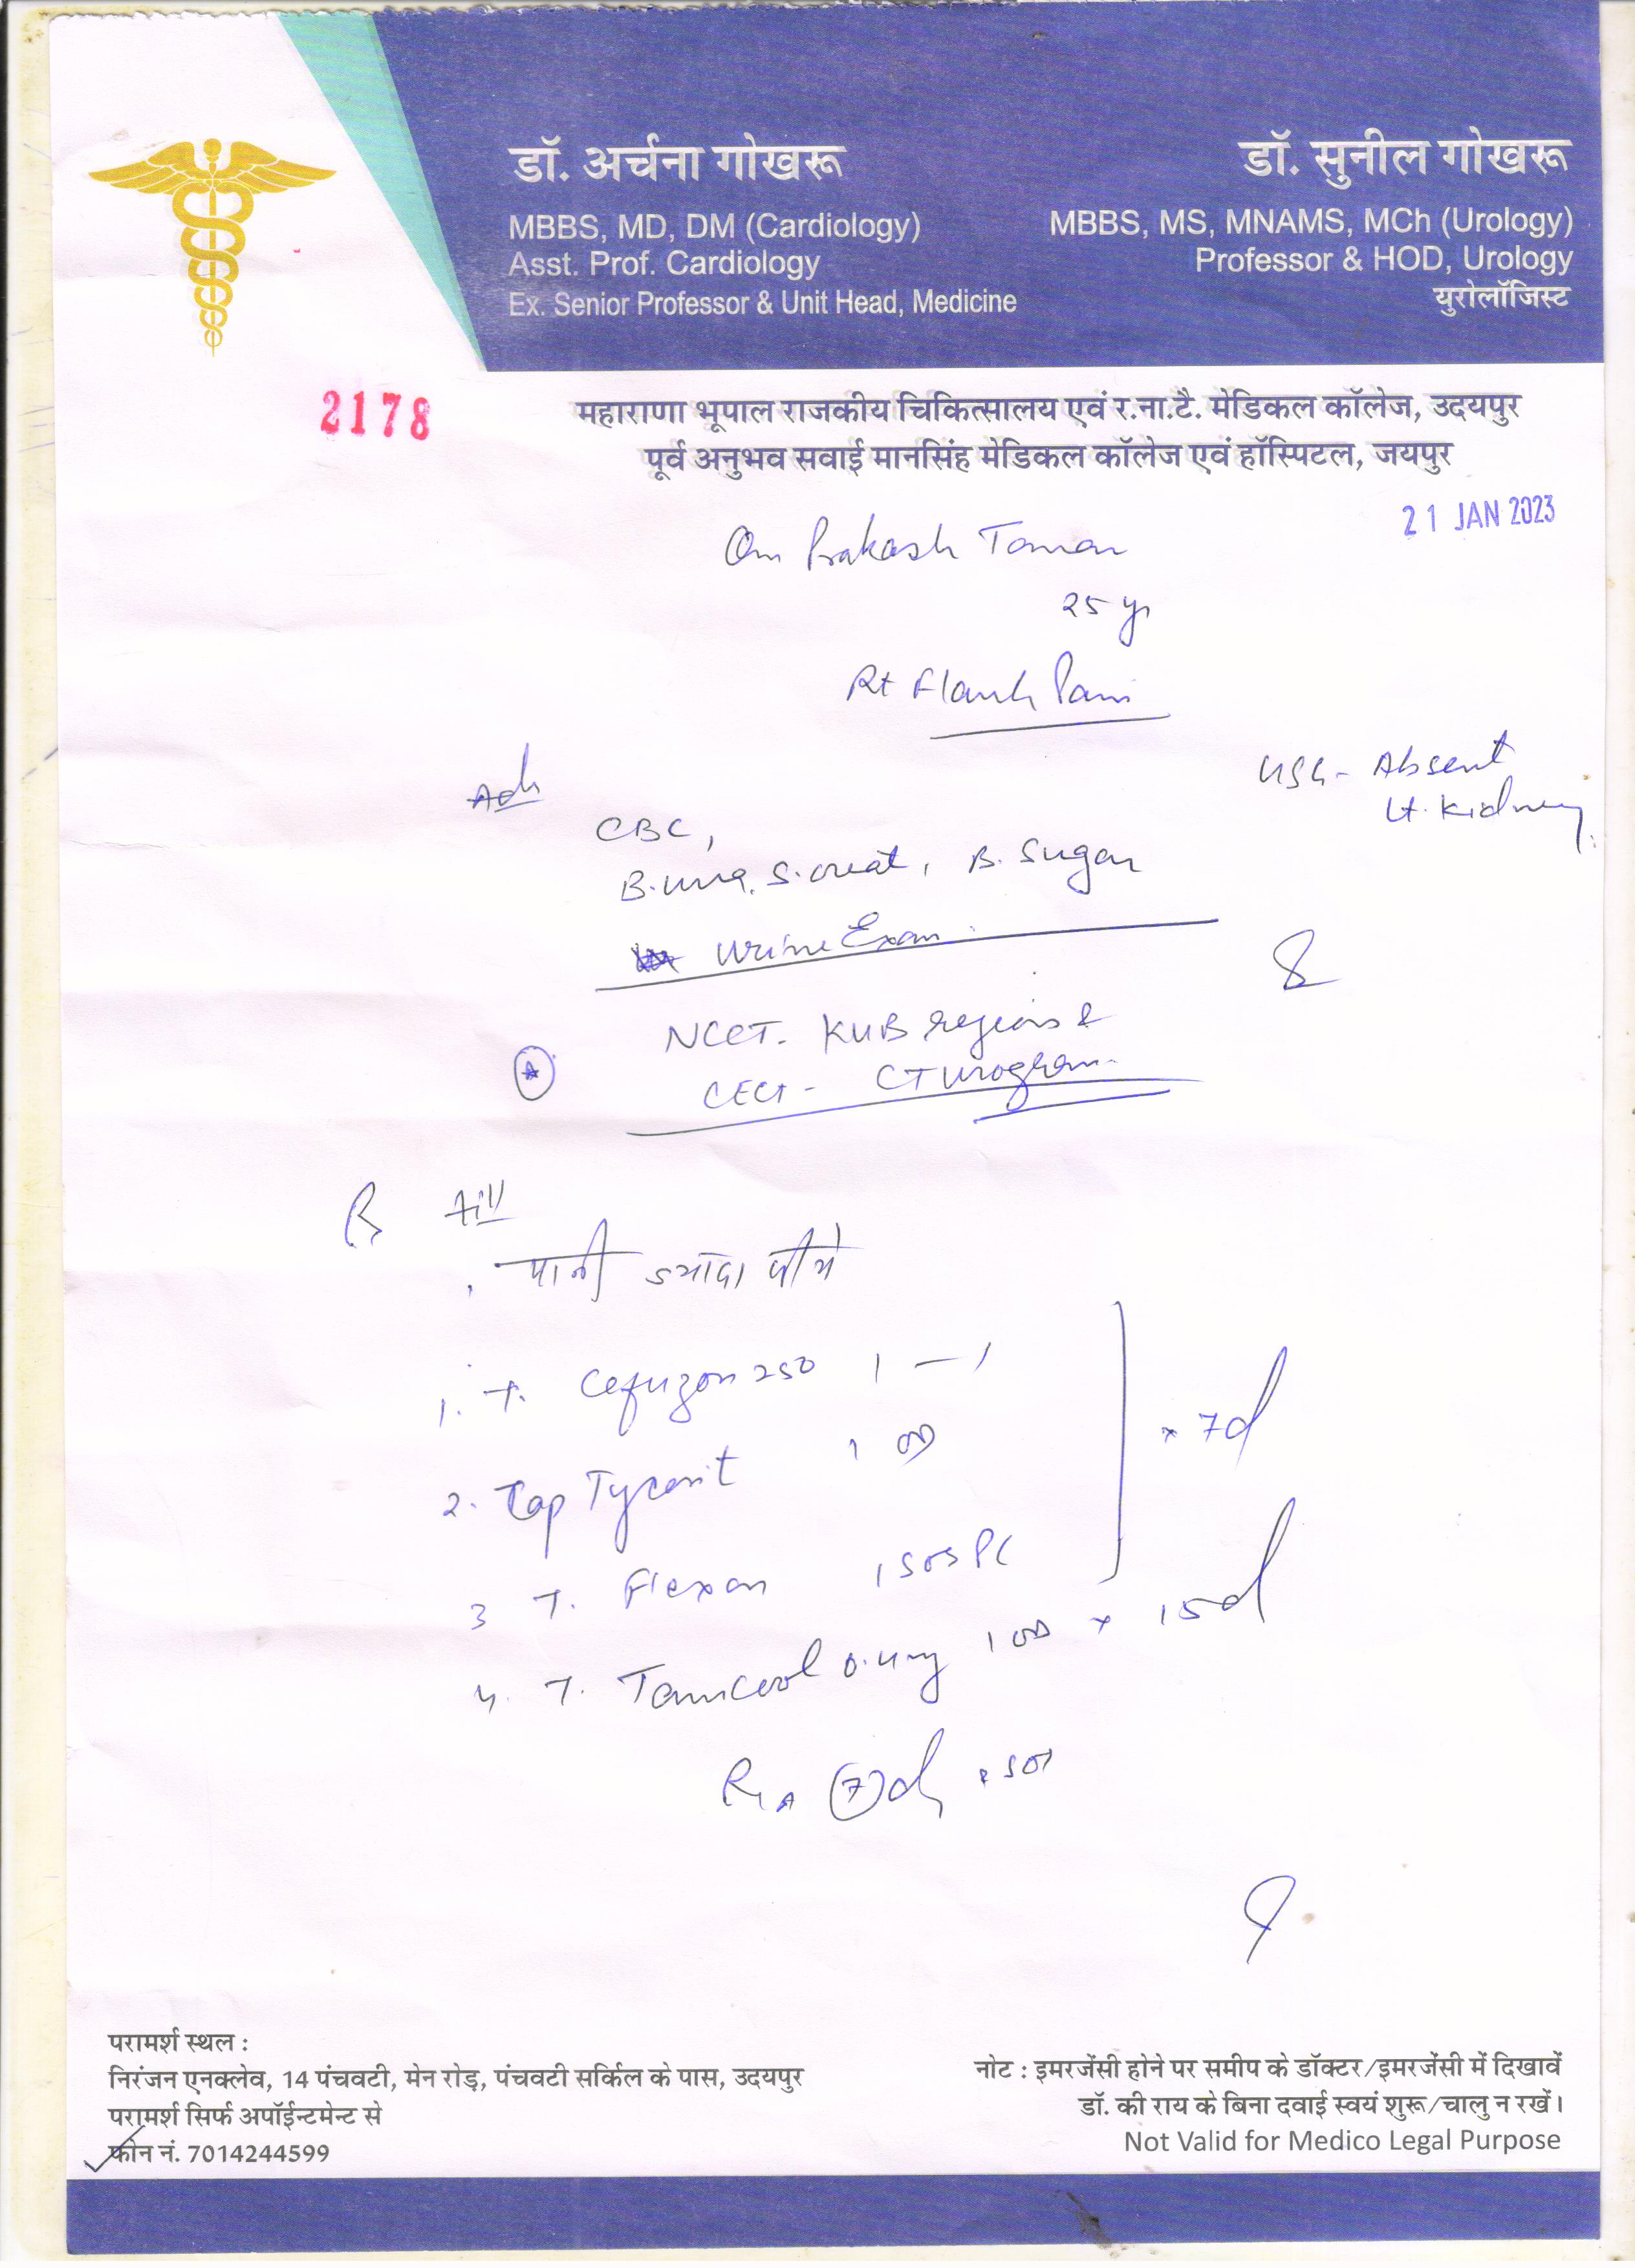 डॉ. अर्चना गोखरू
MBBS, MD, DM (Cardiology)
Asst. Prof. Cardiology
Ex. Senior Professor & Unit Head, Medicine
डॉ. सुनील गोखरू
MBBS, MS, MNAMS, MCh (Urology)
Professor & HOD, Urology
युरोलॉजिस्ट
2178
महाराणा भूपाल राजकीय चिकित्सालय एवं र.ना.टै. मेडिकल कॉलेज, उदयपुर
पूर्व अनुभव सवाई मानसिंह मेडिकल कॉलेज एवं हॉस्पिटल, जयपुर
21 JAN 2023
Om Prakash
25 yr
Rt Flank Pain
USG - Absent
Lt. Kidney
Adv
CBC,
B. urea, S. creat, B. Sugar
Urine Exam
NCCT - KUB region &
CECT - CT urogram
Rx till
पानी ज्यादा पीये
1. T. 250 1 – 1
2. Cap 1 OD
x 7d
3 T. Flexon 1 SOS PC
4. T. 0.4mg 1 OD x 15d
(7)d SOS
परामर्श स्थल :
निरंजन एनक्लेव, 14 पंचवटी, मेन रोड़, पंचवटी सर्किल के पास, उदयपुर
परामर्श सिर्फ अपॉईन्टमेन्ट से
फोन नं. 7014244599
नोट : इमरजेंसी होने पर समीप के डॉक्टर/इमरजेंसी में दिखावें
डॉ. की राय के बिना दवाई स्वयं शुरू/चालु न रखें।
Not Valid for Medico Legal Purpose